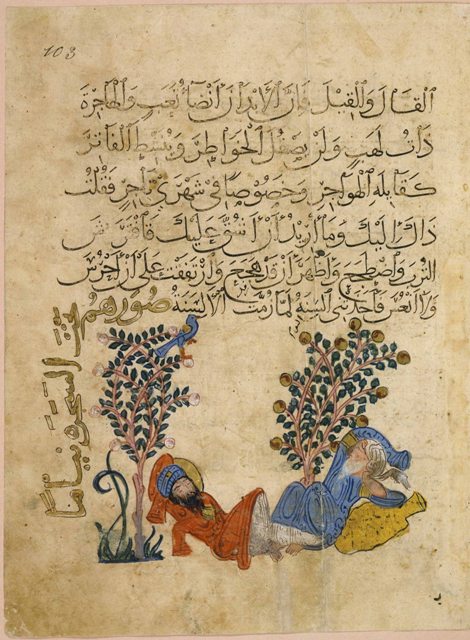 103
القال والقيل فان الابدان انضاء تعب والهاجرة
ذات لهب ولن يصقل الخواطر وينشط الفاتر
كقايلة الهواجر وخصوصا في شهري ناجر فقلت
ذاك اليك وما اريد ان اشق عليك فافترش
الترب واضطجع واظهر ان قد هجع وارتفقت على ان احرس
ولا انعس فاخذتني السنة لما زمت الالسنة صورهم
تحت الشجرة نياما